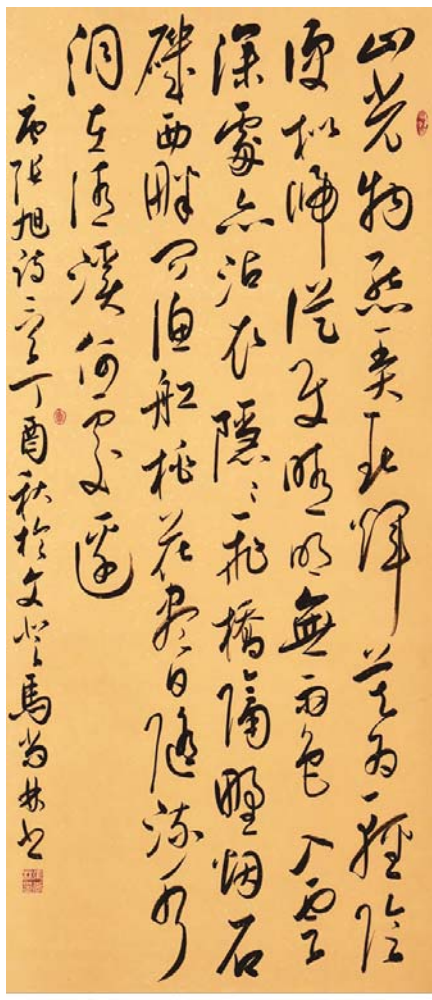 山光物態弄春輝莫為輕陰
便擬歸縱使晴明無雨色入雲
深處亦沾衣隱〻飛橋隔野烟石
磯西畔問漁船桃花盡日隨流水
洞在清溪何處邊
唐張旭詩二首丁酉秋於文登馬尚林書